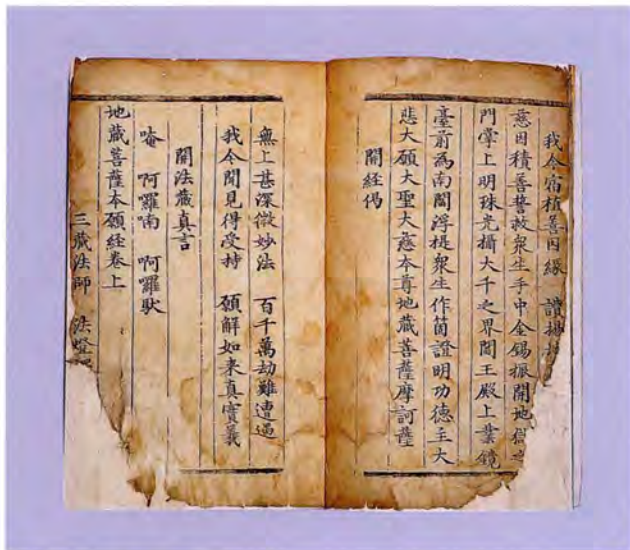 我今宿植善因緣　讚揚
慈因積善誓救衆生手中金錫振開地獄之
門掌上明珠光攝大千之界閻王殿上業鏡
臺前爲南閻浮提衆生作箇證明功德主大
悲大願大聖大慈本尊地藏菩薩摩訶薩
開經偈
無上甚深微妙法　百千萬劫難遭遇
我今聞見得受持　願解如來真實義
開法藏真言
唵　啊羅喃　啊羅馱
地藏菩薩本願經卷上
三藏法師　法燈